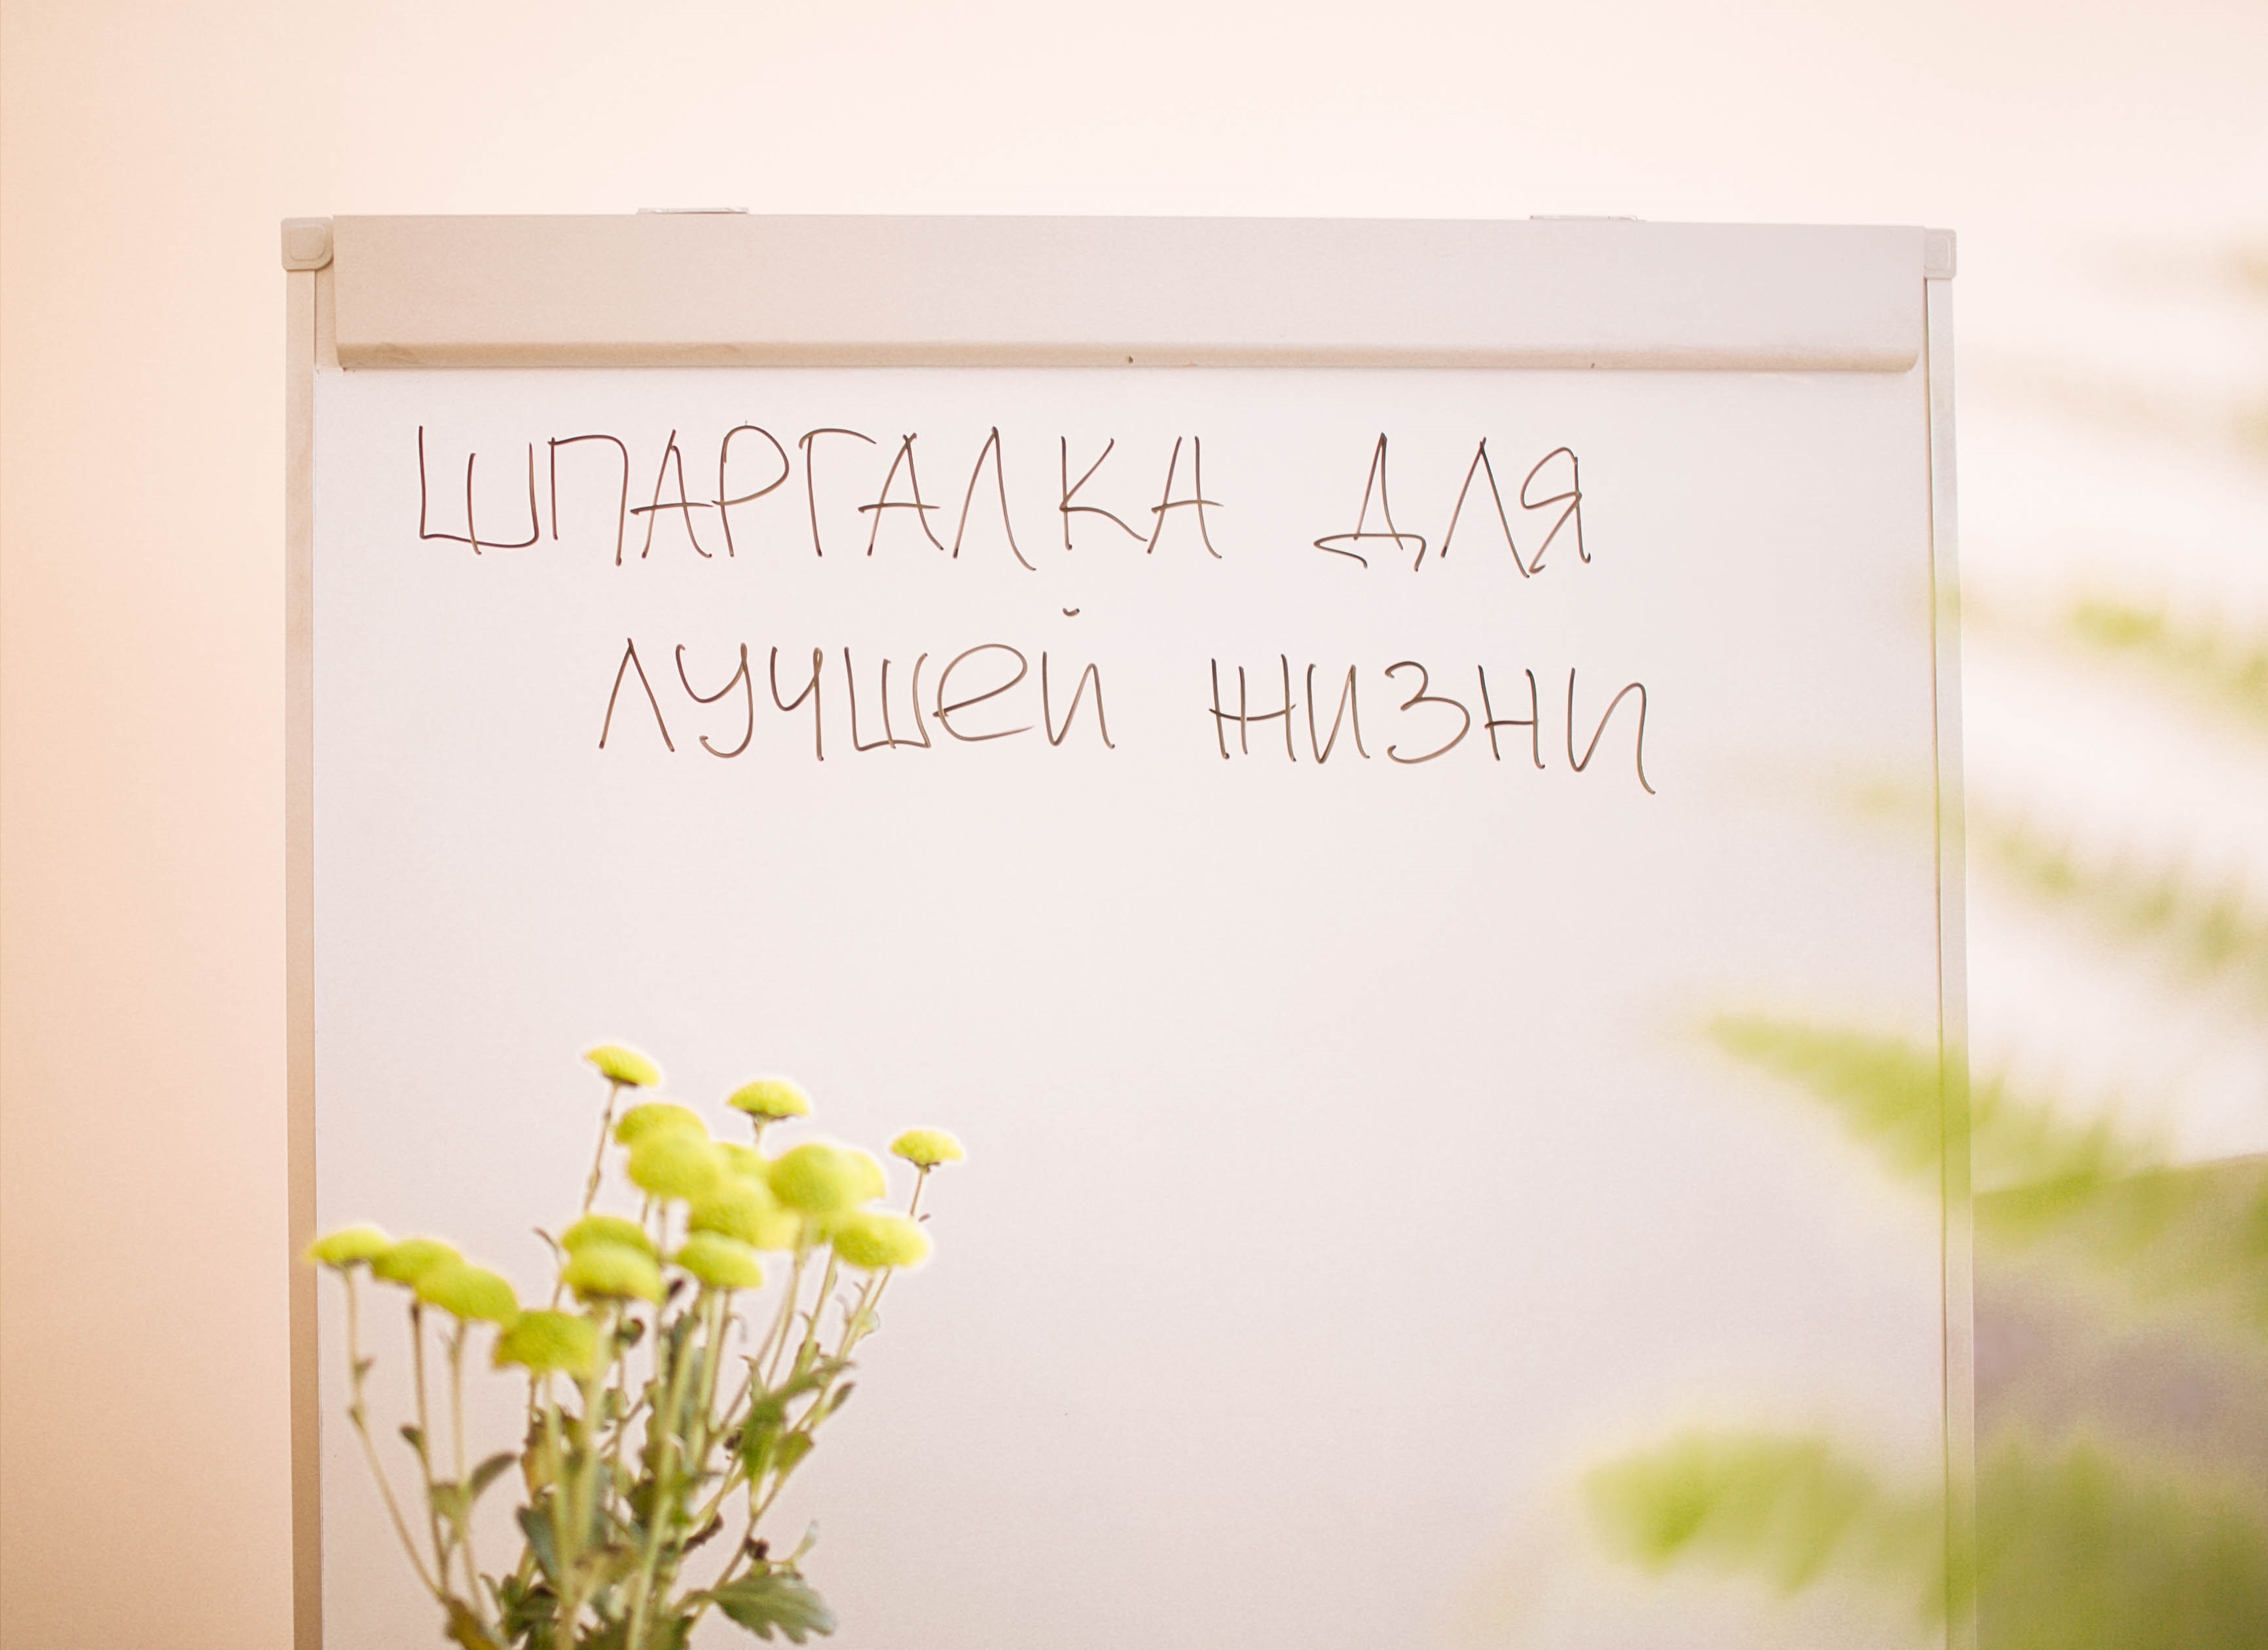 ШПАРГАЛКА ДЛЯ
ЛУЧШЕЙ ЖИЗНИ